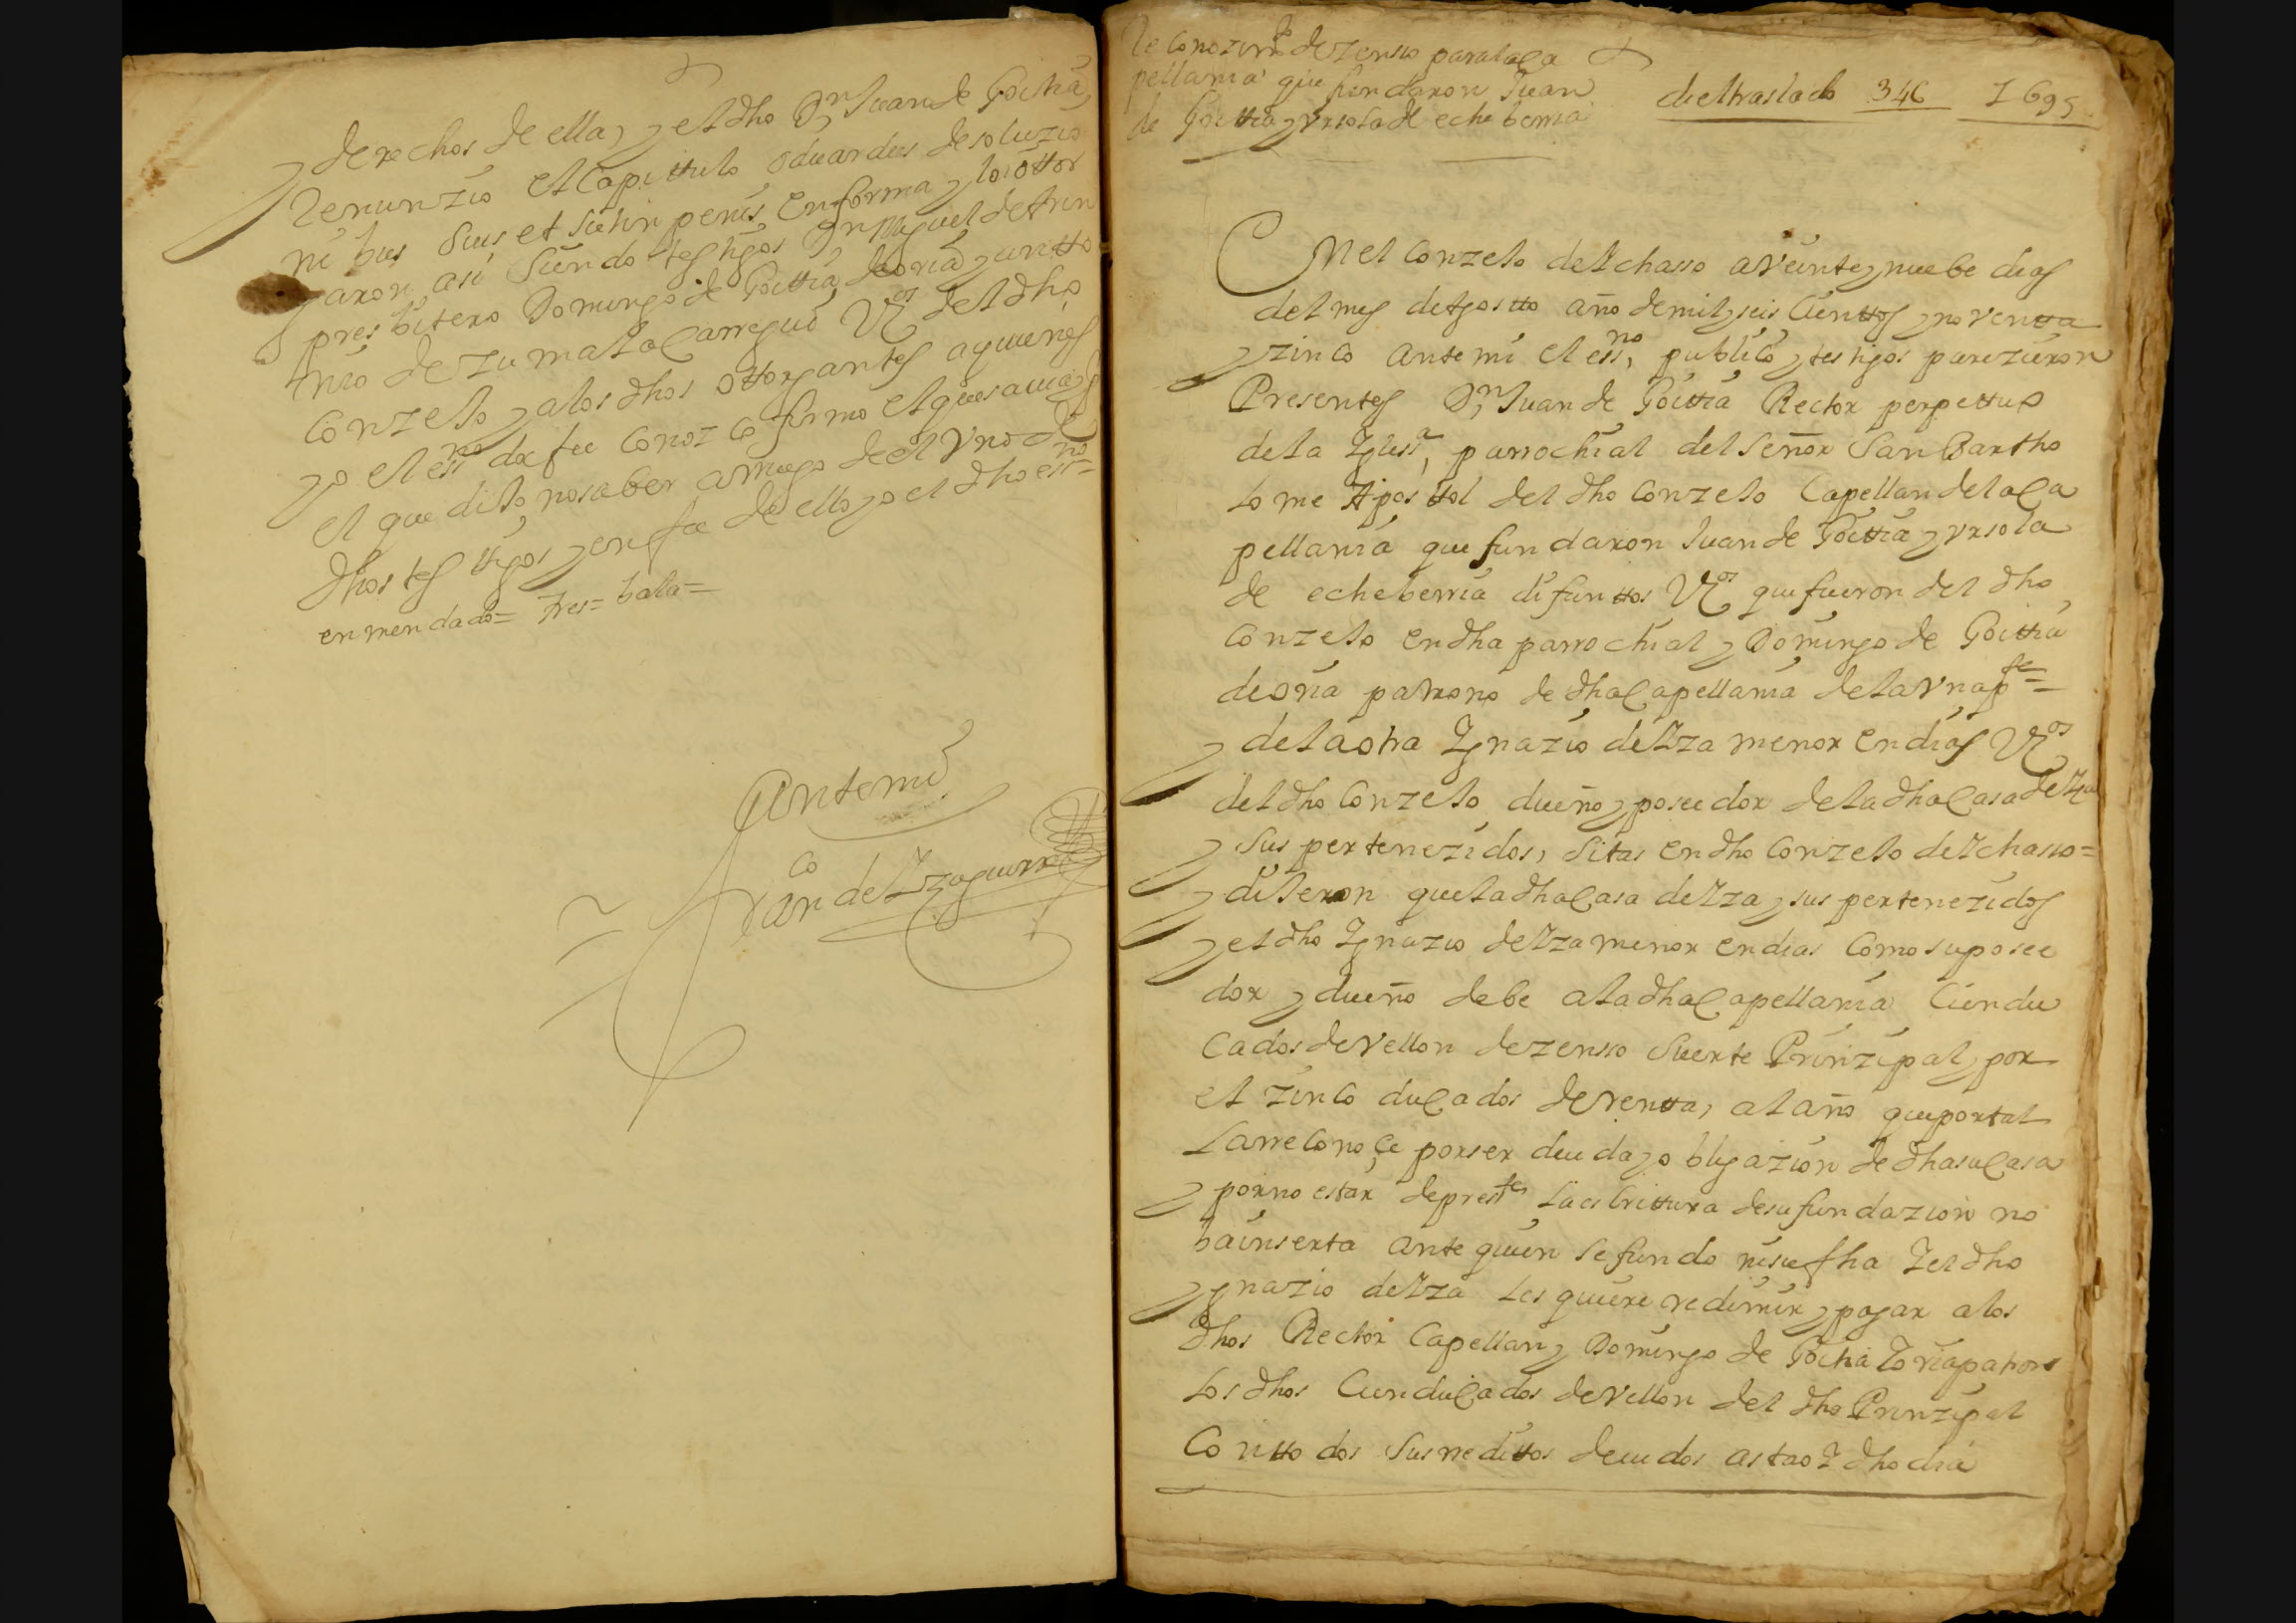 y derechos de ella, y el dho Dn Juan de Goittia
renunzio el Capittulo oduardus de soluzio
nibus Suis et suetin penis, en forma y lo ottor
garon asi Siendo testigos Dn Miguel de
presbitero Domingo de Goittia deoria y antto
nio de zumalacarregui Vos del dho
Conzejo y a los dhos ottorgantes a quienes
yo el essno doi fee conozco firmo el que savia y
el que dijo no saber a ruego de el uno de
dhos testigos y en fee de ello yo el dho essno=
enmendado= tres= bala=
Ante mi
Franco de Yzaguirre
Reconozimto de zenso para la Ca
pellania que fundaron Juan
de Goittia y ursola de echeberria
di el traslado 346 1695
En el Conzejo de Ychasso a veinte y nuebe dias
del mes de Agostto año de mil y seis Cienttos y noventta
y zinco ante mi el essno, publico y testigos parezieron
Presentes Dn Juan de Goittia Rector perpettuo
de la Yglessa, parrochial del Señor San Bartho
lome Apostol del dho Conzejo Capellan de la Ca
pellania que fundaron Juan de Goittia y ursola
de echeberria difunttos Vos que fueron del dho
Conzejo en dha parrochial y Domingo de Goittia
deoria patrono de dha Capellania de la vna pte=
y de la otra Ygnazio de Yza menor en dias Vos
del dho Conzejo dueño y poseedor de la dha Casa de Yza
y sus pertenezidos, sitas en dho Conzejo de Ychasso=
y dijeron que la dha Casa de Yza y sus pertenezidos
y el dho Ygnazio de Yza menor en dias Como su posee
dor y dueño debe a la dha Capellania Cien du
cados de vellon de zensso Suerte Prinzipal, por
el zinco ducados de rentta, al año que por tal
la rreconoçe por ser deuda y obligazion de dha su Casa
y por no estar de presste la escrittura de su fundazion no
ba inserta ante quien se fundo ni su fha Y el dho
Ygnazio de Yza les quiere redimir y pagar a los
dhos Rector Capellan y Domingo de Goitia Yoria patrono
los dhos Cien ducados de vellon del dho Prinzipal
Con ttodos Sus rredittos deuidos asta oy dho dia